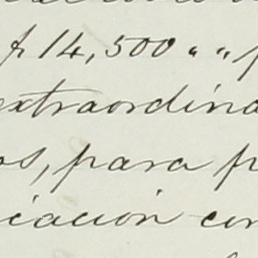 14,500 „ „
extraordina
os, para p
icacion con